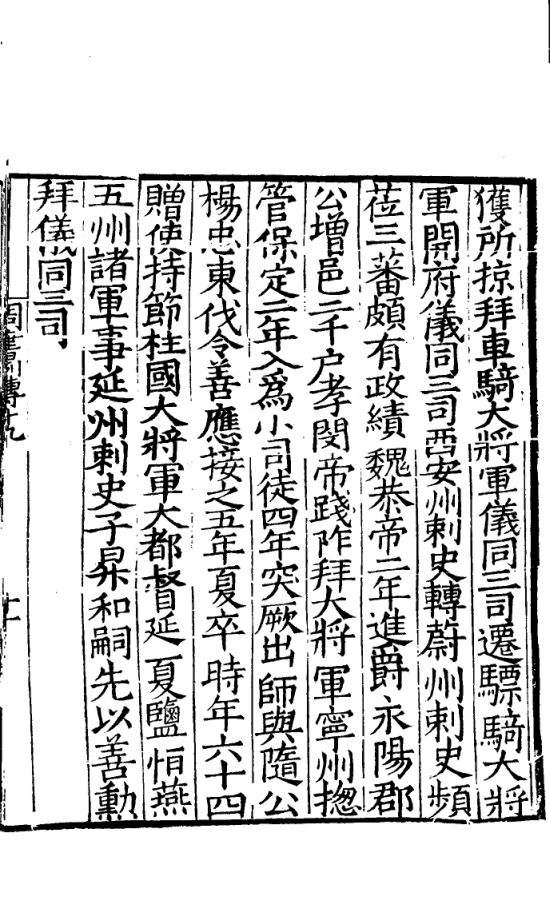 獲所掠拜車騎大將軍儀同三司遷驃騎大將
軍開府儀同三司西安州刺史轉蔚州刺史頻
莅三蕃頗有政績魏恭帝二年進爵永陽郡
公增邑二千户孝閔帝踐阼拜大將軍寧州揔
管保定二年入爲小司徒四年突厥出師與隨公
楊忠東伐令善應接之五年夏卒時年六十四
贈使持節柱國大將軍大都督延夏鹽恒燕
五州諸軍事延州刺史子昇和嗣先以善勳
拜儀同三司
周書傳十九
十一